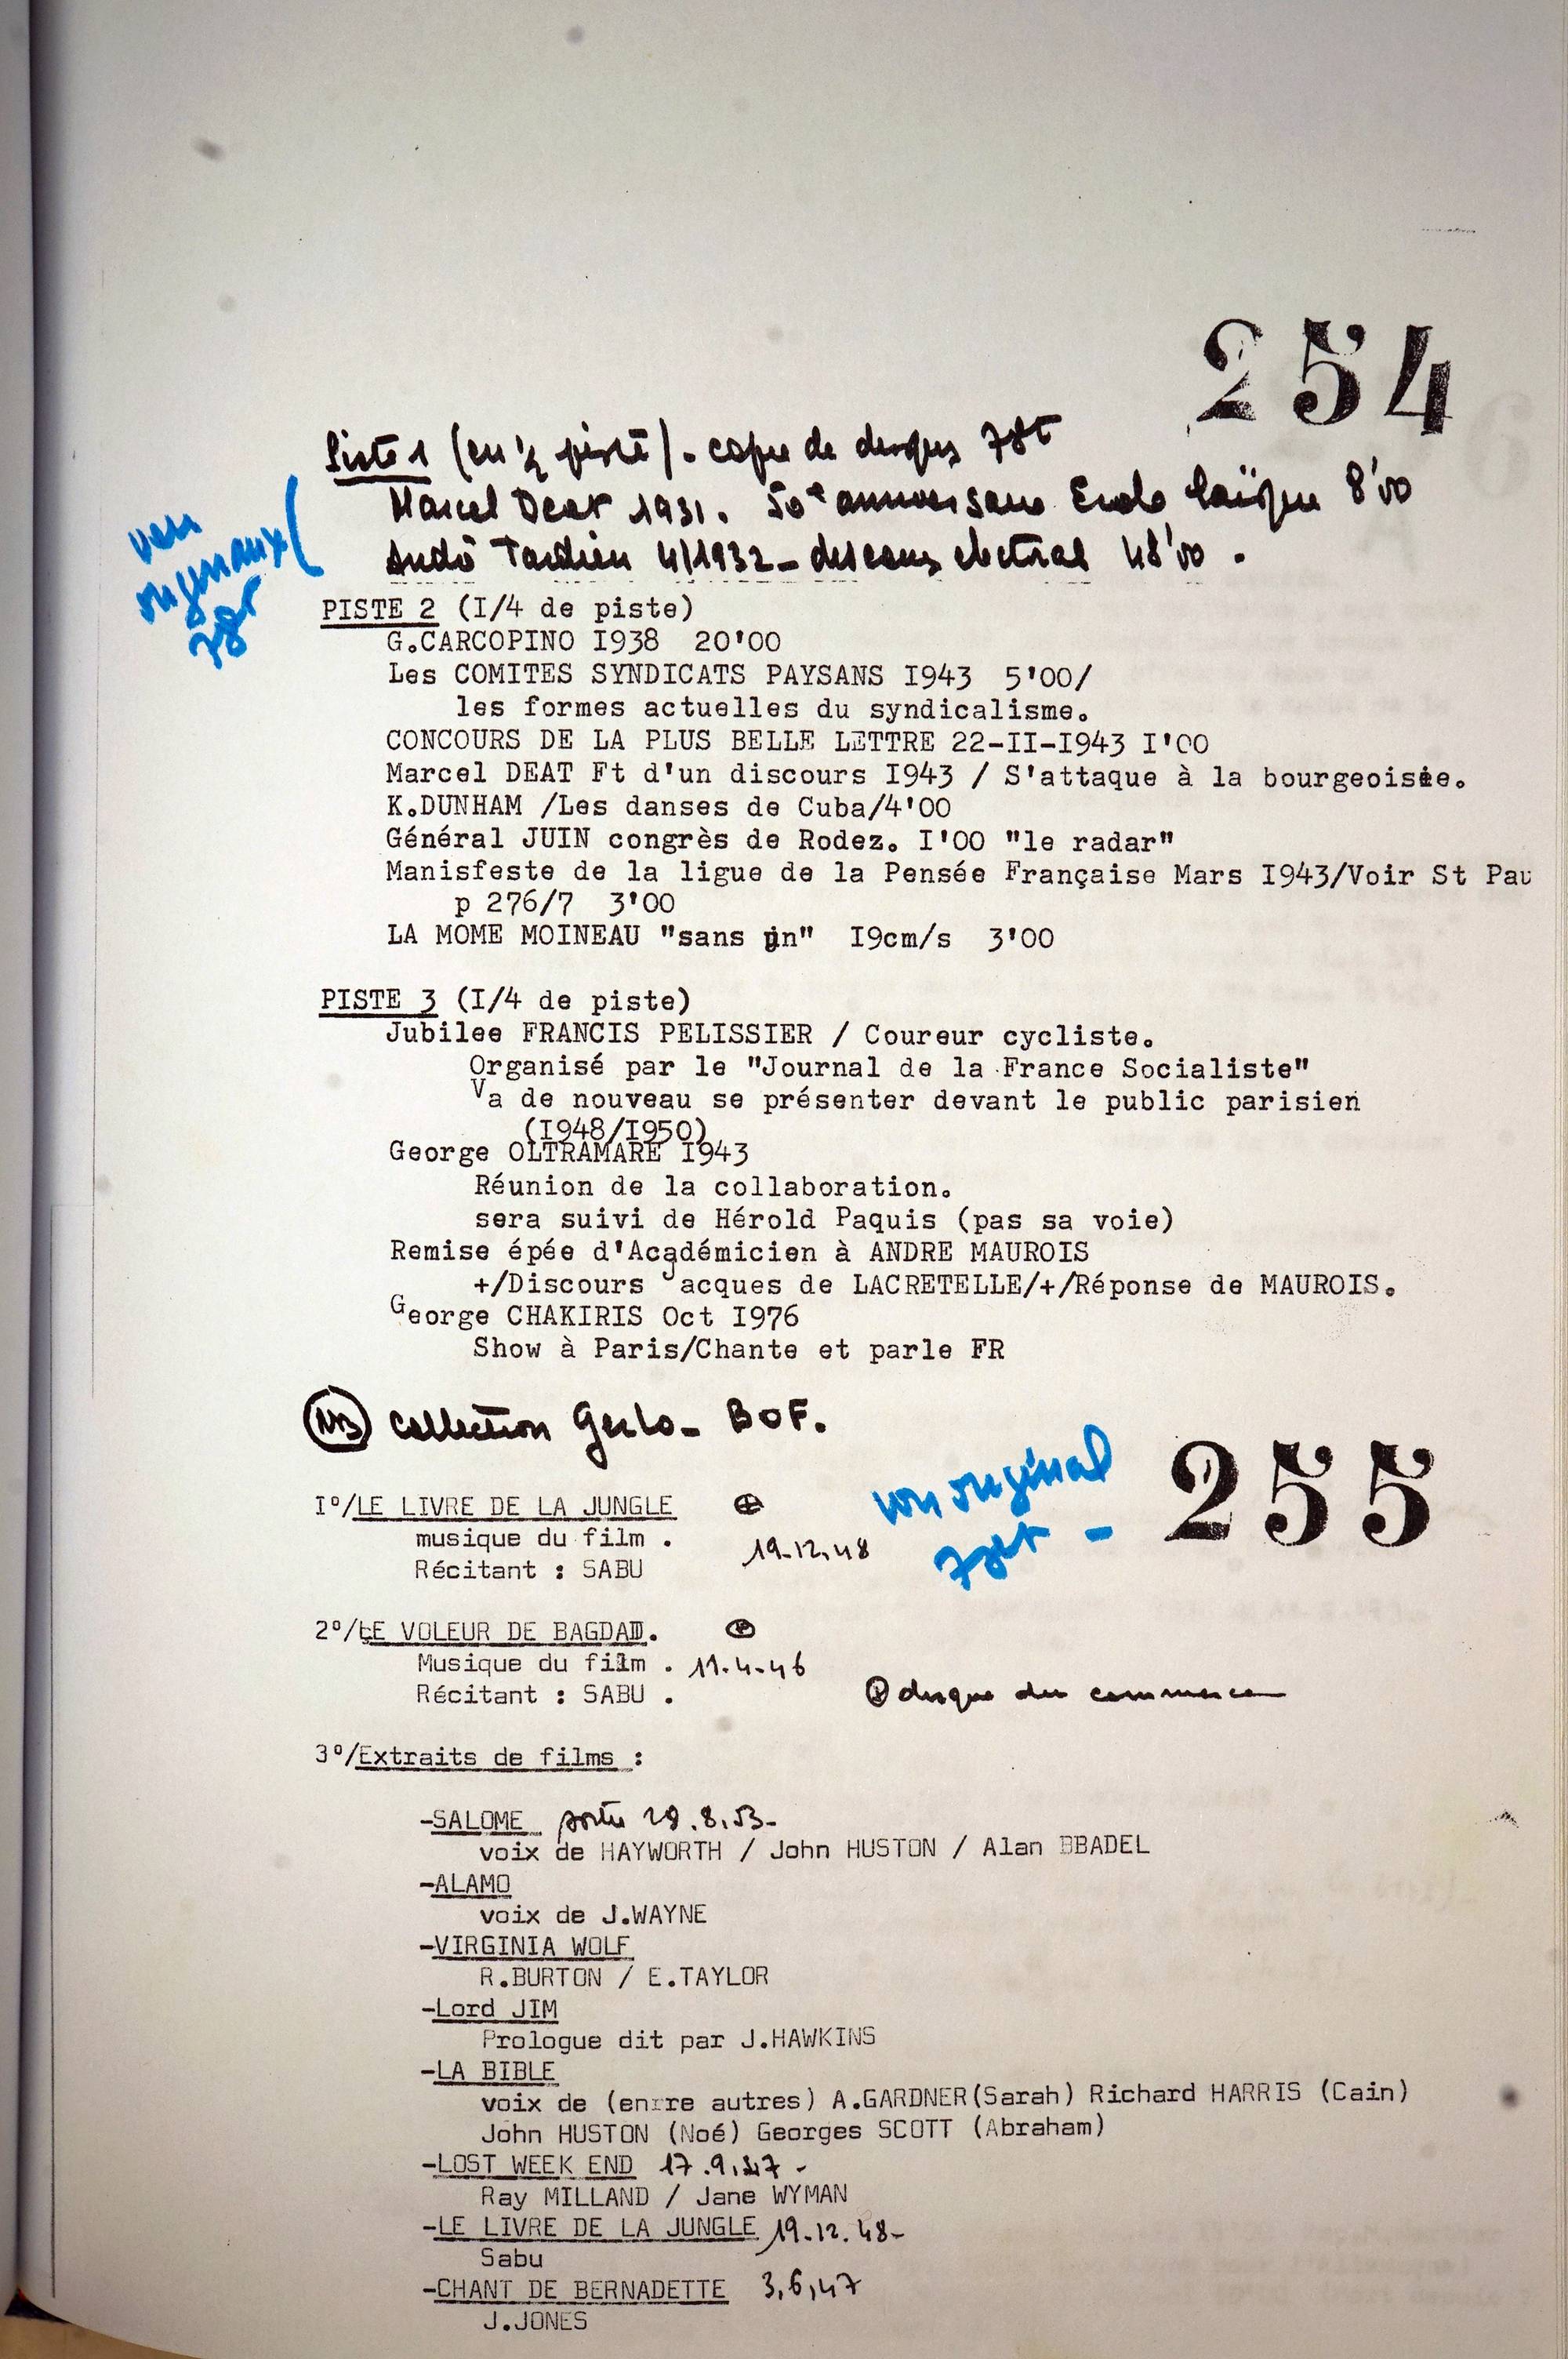 254
Piste 1 (en 1/2 piste). copie de disques 78t
Marcel Deat 1931. 50e anniversaire Ecole laïque 8'00
André Tardieu 4/1932 - discours electoral 48'00.
voir
originaux (
78t
PISTE 2 (I/4 de piste)
G.CARCOPINO I938 20'00
Les COMITES SYNDICATS PAYSANS I943 5'00/
les formes actuelles du syndicalisme.
CONCOURS DE LA PLUS BELLE LETTRE 22-II-I943 I'00
Marcel DEAT Ft d'un discours I943 / S'attaque à la bourgeoisie.
K.DUNHAM /Les danses de Cuba/4'00
Général JUIN congrès de Rodez. I'00 "le radar"
Manisfeste de la ligue de la Pensée Française Mars I943/Voir St Pau
p 276/7 3'00
LA MOME MOINEAU "sans un" I9cm/s 3'00
PISTE 3 (I/4 de piste)
Jubilee FRANCIS PELISSIER / Coureur cycliste.
Organisé par le "Journal de la France Socialiste"
Va de nouveau se présenter devant le public parisien
(I948/I950)
George OLTRAMARE I943
Réunion de la collaboration.
sera suivi de Hérold Paquis (pas sa voie)
Remise épée d'Académicien à ANDRE MAUROIS
+/Discours Jacques de LACRETELLE/+/Réponse de MAUROIS.
George CHAKIRIS Oct I976
Show à Paris/Chante et parle FR
NB Collection Gerlo - BOF.
voir original
78t -
255
I°/LE LIVRE DE LA JUNGLE
musique du film . 19-12.48
Récitant : SABU
2°/LE VOLEUR DE BAGDAD.
Musique du film . 11.4.46
Récitant : SABU .
disque du commerce
3°/Extraits de films :
-SALOME sortie 28.8.53-
voix de HAYWORTH / John HUSTON / Alan BBADEL
-ALAMO
voix de J.WAYNE
-VIRGINIA WOLF
R.BURTON / E.TAYLOR
-Lord JIM
Prologue dit par J.HAWKINS
-LA BIBLE
voix de (entre autres) A.GARDNER(Sarah) Richard HARRIS (Cain)
John HUSTON (Noé) Georges SCOTT (Abraham)
-LOST WEEK END 17.9.47 -
Ray MILLAND / Jane WYMAN
-LE LIVRE DE LA JUNGLE 19.12.48-
Sabu
-CHANT DE BERNADETTE 3,6,47
J.JONES